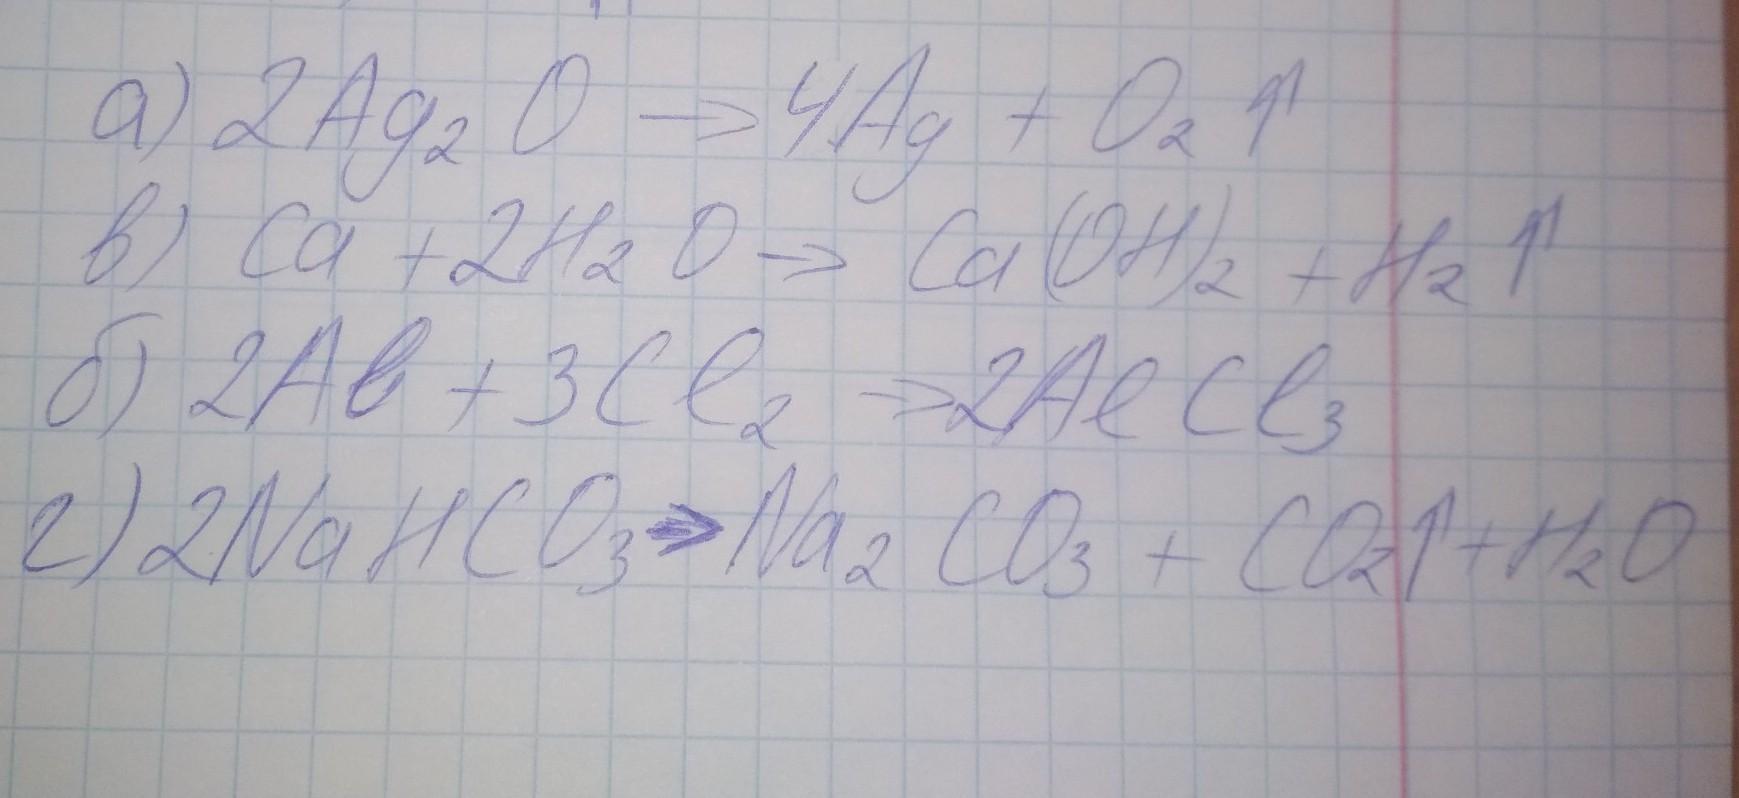 а) 2Ag₂O → 4Ag + O₂↑
в) Ca + 2H₂O → Ca(OH)₂ + H₂↑
б) 2Al + 3Cl₂ → 2AlCl₃
г) 2NaHCO₃ → Na₂CO₃ + CO₂↑ + H₂O